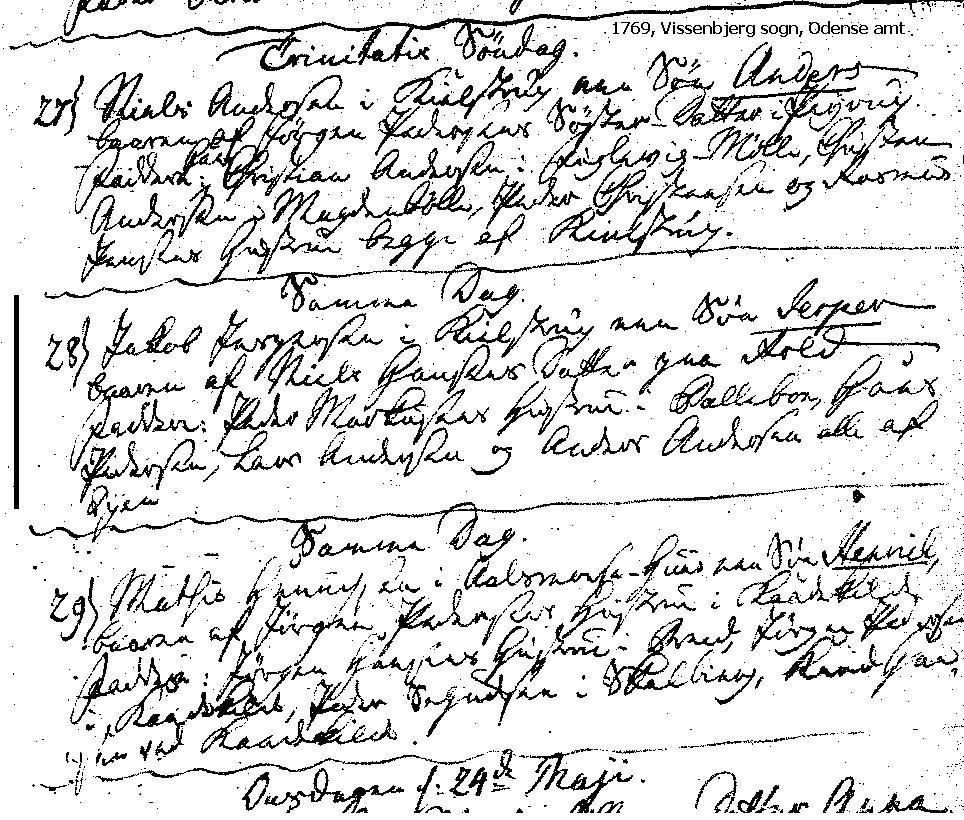 1769, Vissenbjerg sogn, Odense amt
Trinitatis Söndag.
27) Niels Andersen i Kielstrup een Sön Anders
baaren af Jörgen Pedersens Söster Datter i
Faddere: Christian Andersen i Mölle, Christen
Andersen i Magdenbölle, Peder Christensen og Rasmus
Jensens Hustrue begge af Kielstrup.
Samme Dag.
28) Jakob Jespersen i Kielstrup een Sön Jesper
baaren af Niels Hansens Datter paa Kold
Faddere: Peder Markusens Hustrue i Palleboe, Hans
Pedersen, Lars Andersen og Anders Andersen alle af
Byen
Samme Dag.
29) Mathis i Huus een Sön Henrik,
baaren af Jörgen Pedersens Hustrue i Kaadekilde
Faddere: Jörgen Hansens Hustrue i Bred, Jörgen Pedersen
i Kaadekilde, Peder i Skalbierg, Knud Han
sen ved Kaadekilde.
Onsdagen d: 24de Maji.
Datter Anna